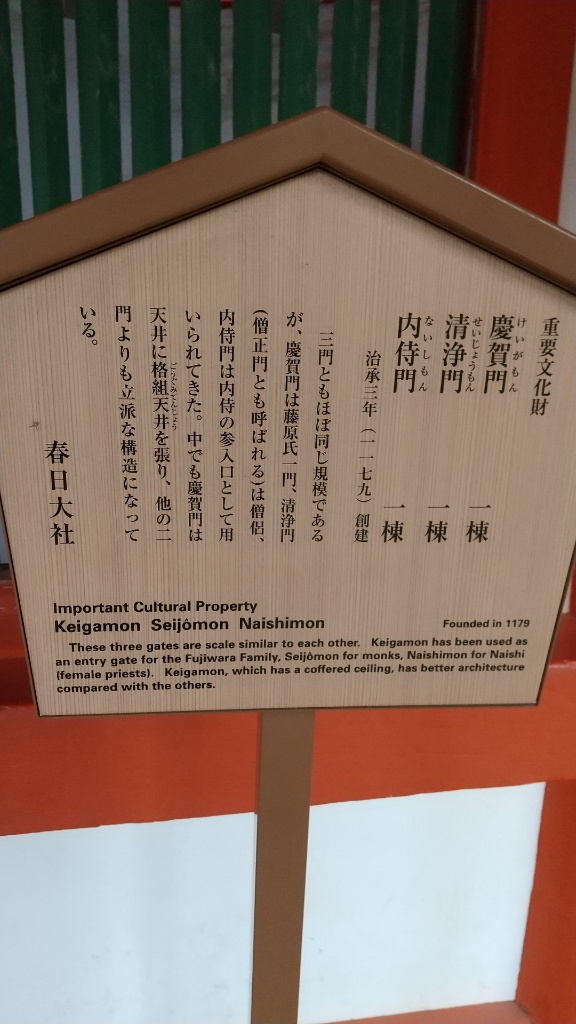 重要文化財
慶賀門 一棟
けいがもん
清浄門 一棟
せいじょうもん
内侍門 一棟
ないしもん
治承三年（一一七九）創建
三門ともほぼ同じ規模である
が、慶賀門は藤原氏一門、清浄門
（僧正門とも呼ばれる）は僧侶、
内侍門は内侍の参入口として用
いられてきた。中でも慶賀門は
天井に格組天井を張り、他の二
ごうぐみてんじょう
門よりも立派な構造になって
いる。
春日大社
Important Cultural Property
Keigamon Seijômon Naishimon
Founded in 1179
These three gates are scale similar to each other. Keigamon has been used as
an entry gate for the Fujiwara Family, Seijômon for monks, Naishimon for Naishi
(female priests). Keigamon, which has a coffered ceiling, has better architecture
compared with the others.